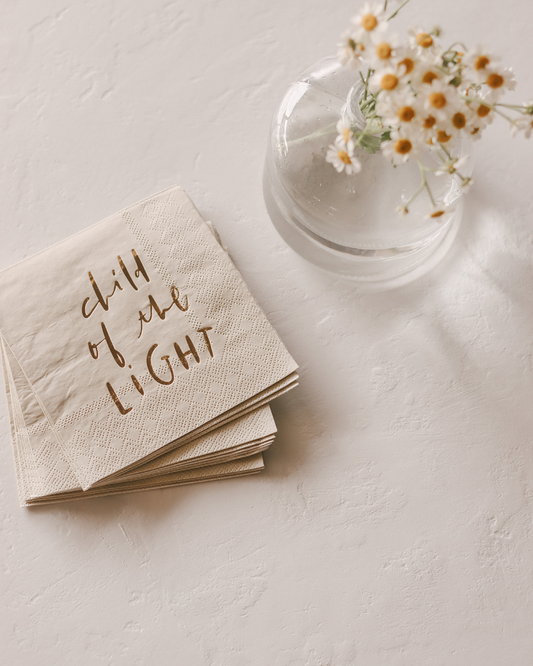 child
of the
LIGHT